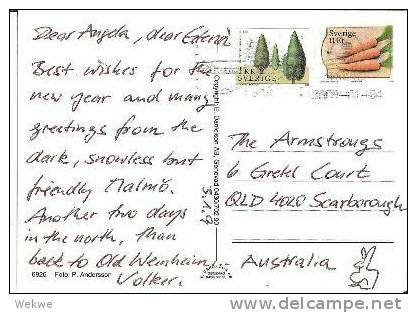 Dear Angela, dear
Best wishes for the
new year and many
greetings from the
dark, snowless but
friendly Malmö.
Another two days
in the north, than
back to Old Weinheim
Volker.
6926 Foto: P. Andersson
5.1.9
SVERIGE
Sverige
The Armstrongs
6 Gretel Court
QLD 4020 Scarborough
Australia
Wekwe
delcampe.net